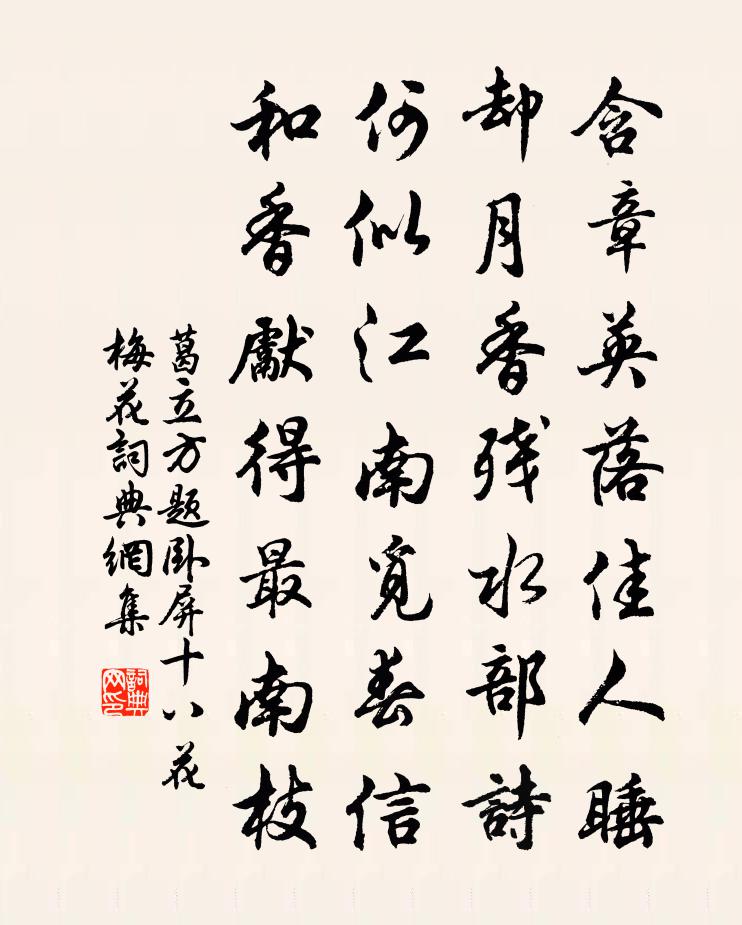 含章英落佳人睡
却月香残水部詩
何似江南覓春信
和香獻得最南枝
葛立方題卧屏十八花
梅花詞典網集
詞典网印